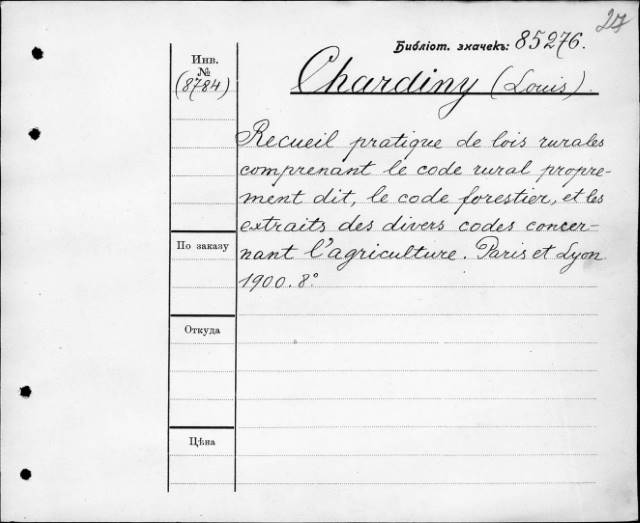 27
Библіот. значекъ: 85276.
Инв.
№
(8784)
Chardiny (Louis).
Recueil pratique de lois rurales
comprenant le code rural propre-
ment dit, le code forestier, et les
extraits des divers codes concer-
nant l'agriculture. Paris et Lyon
1900. 8°
По заказу
Откуда
Цѣна